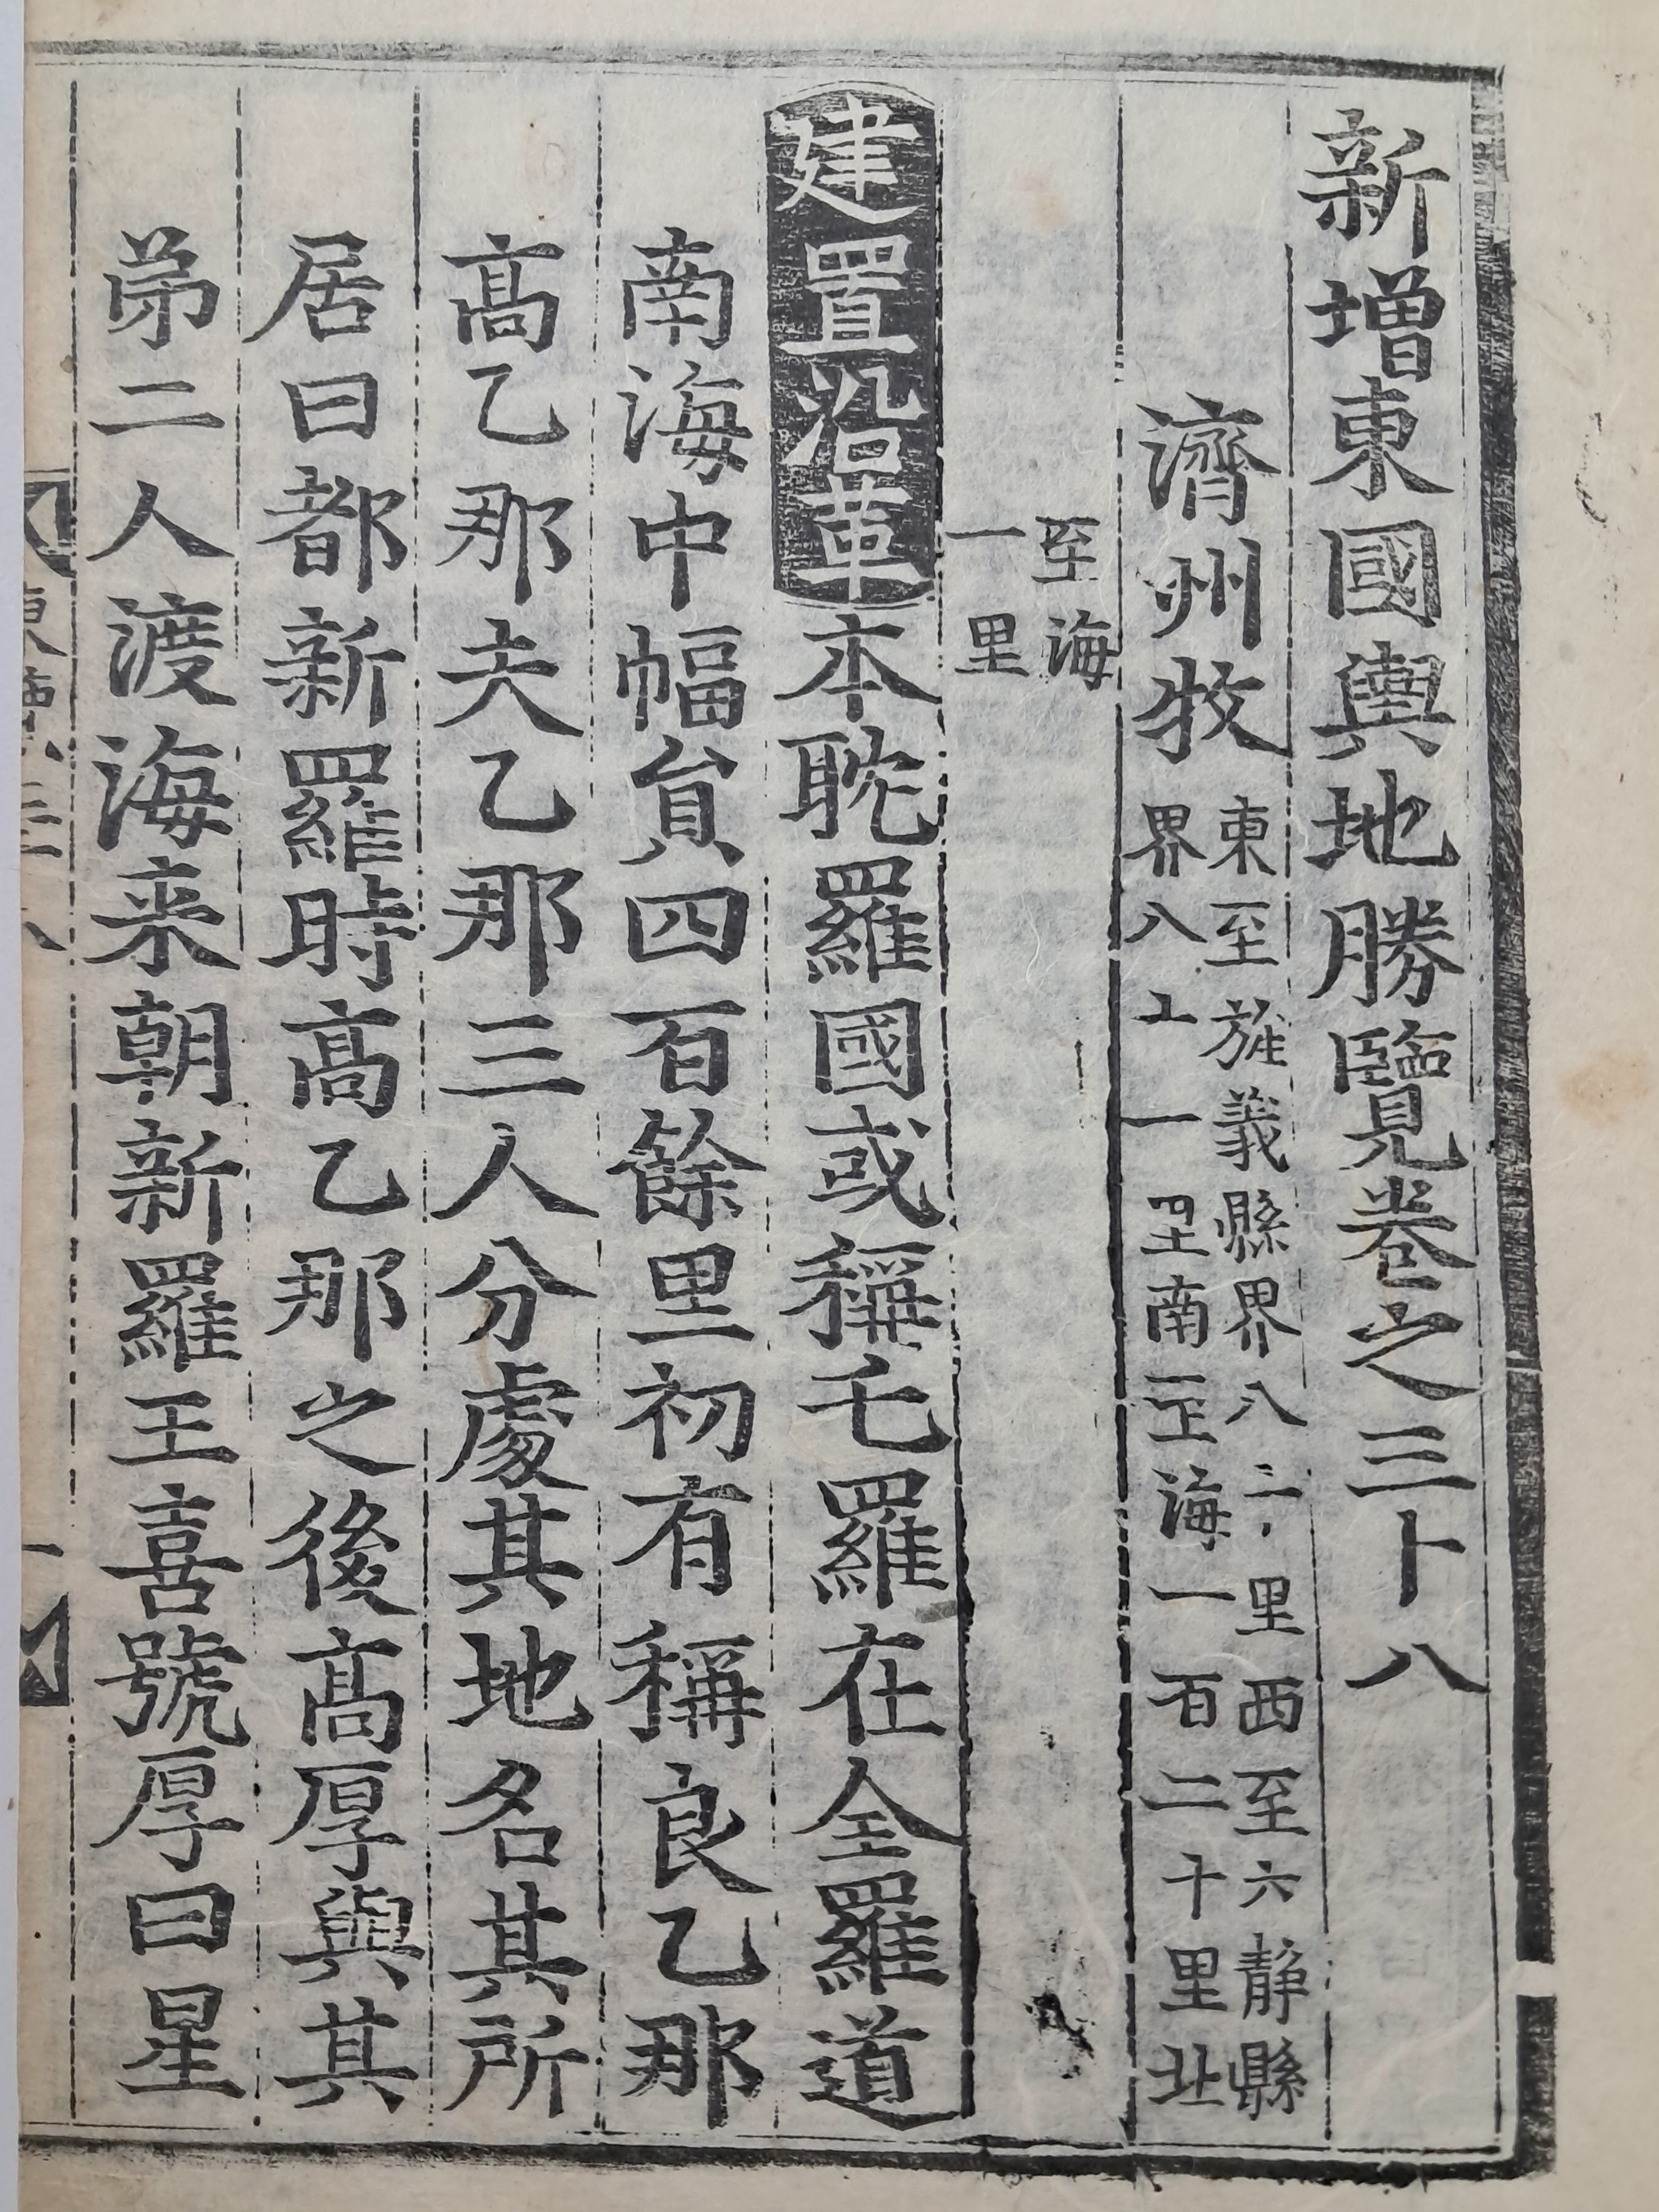 新增東國輿地勝覽卷之三十八
濟州牧
東至旌義縣界八里西至六靜縣
界八一里南至海一百二十里北
至海
一里
建置沿革本耽羅國或稱乇羅在全羅道
南海中幅員四百餘里初有稱良乙那
高乙那夫乙那三人分處其地名其所
居曰都新羅時高乙那之後高厚與其
弟二人渡海来朝新羅王喜號厚曰星